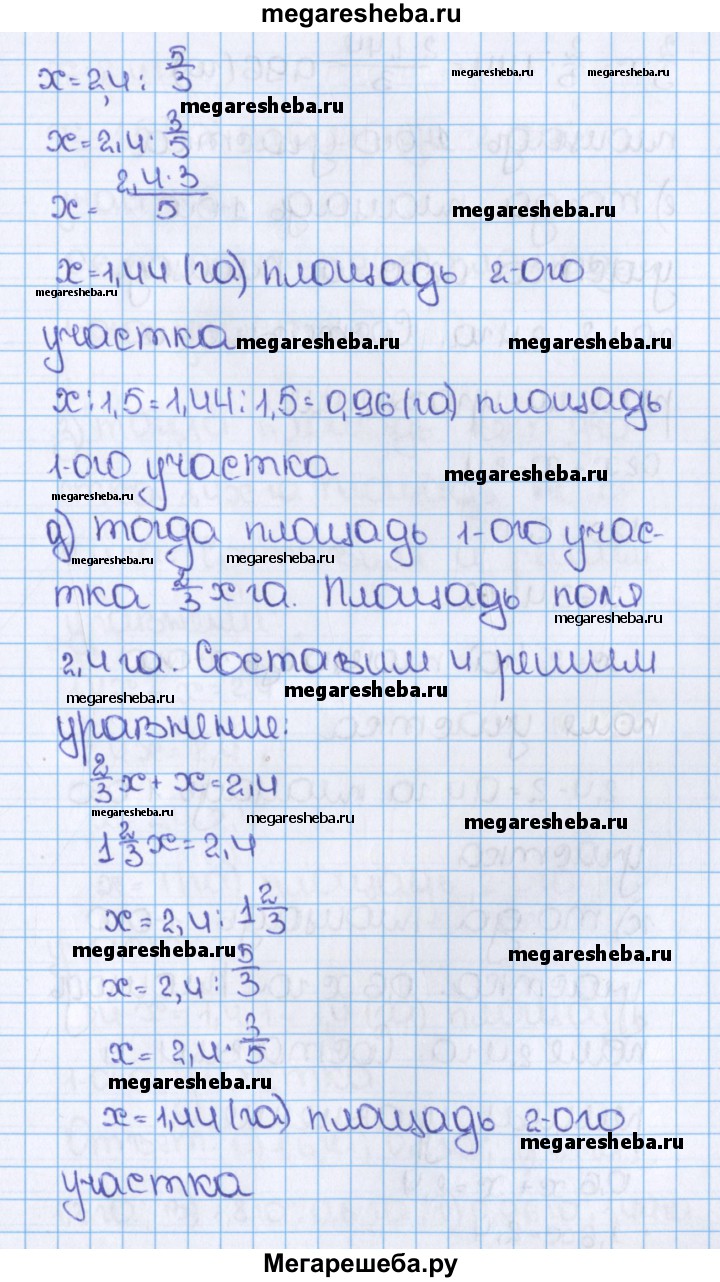 megaresheba.ru
x = 2,4 : 5/3
megaresheba.ru megaresheba.ru
megaresheba.ru
x = 2,4 · 3/5
x = 2,4 · 3/5
megaresheba.ru
x = 1,44 (га) площадь 2-ого
megaresheba.ru
участка
megaresheba.ru megaresheba.ru
x : 1,5 = 1,44 : 1,5 = 0,96 (га) площадь
1-ого участка
megaresheba.ru
megaresheba.ru
д) тогда площадь 1-ого учас-
megaresheba.ru megaresheba.ru
тка 2/3 x га. Площадь поля
megaresheba.ru
2,4 га. Составим и решим
megaresheba.ru megaresheba.ru
уравнение:
2/3 x + x = 2,4
megaresheba.ru megaresheba.ru megaresheba.ru
1 2/3 x = 2,4
x = 2,4 : 1 2/3
megaresheba.ru megaresheba.ru
x = 2,4 : 5/3
x = 2,4 · 3/5
megaresheba.ru
x = 1,44 (га) площадь 2-ого
megaresheba.ru
участка
Мегарешеба.ру